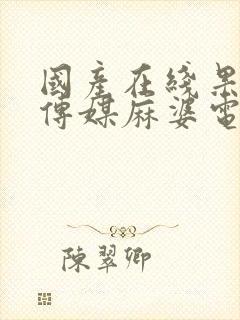 國產在线果
傳媒麻婆電
陳翠卿